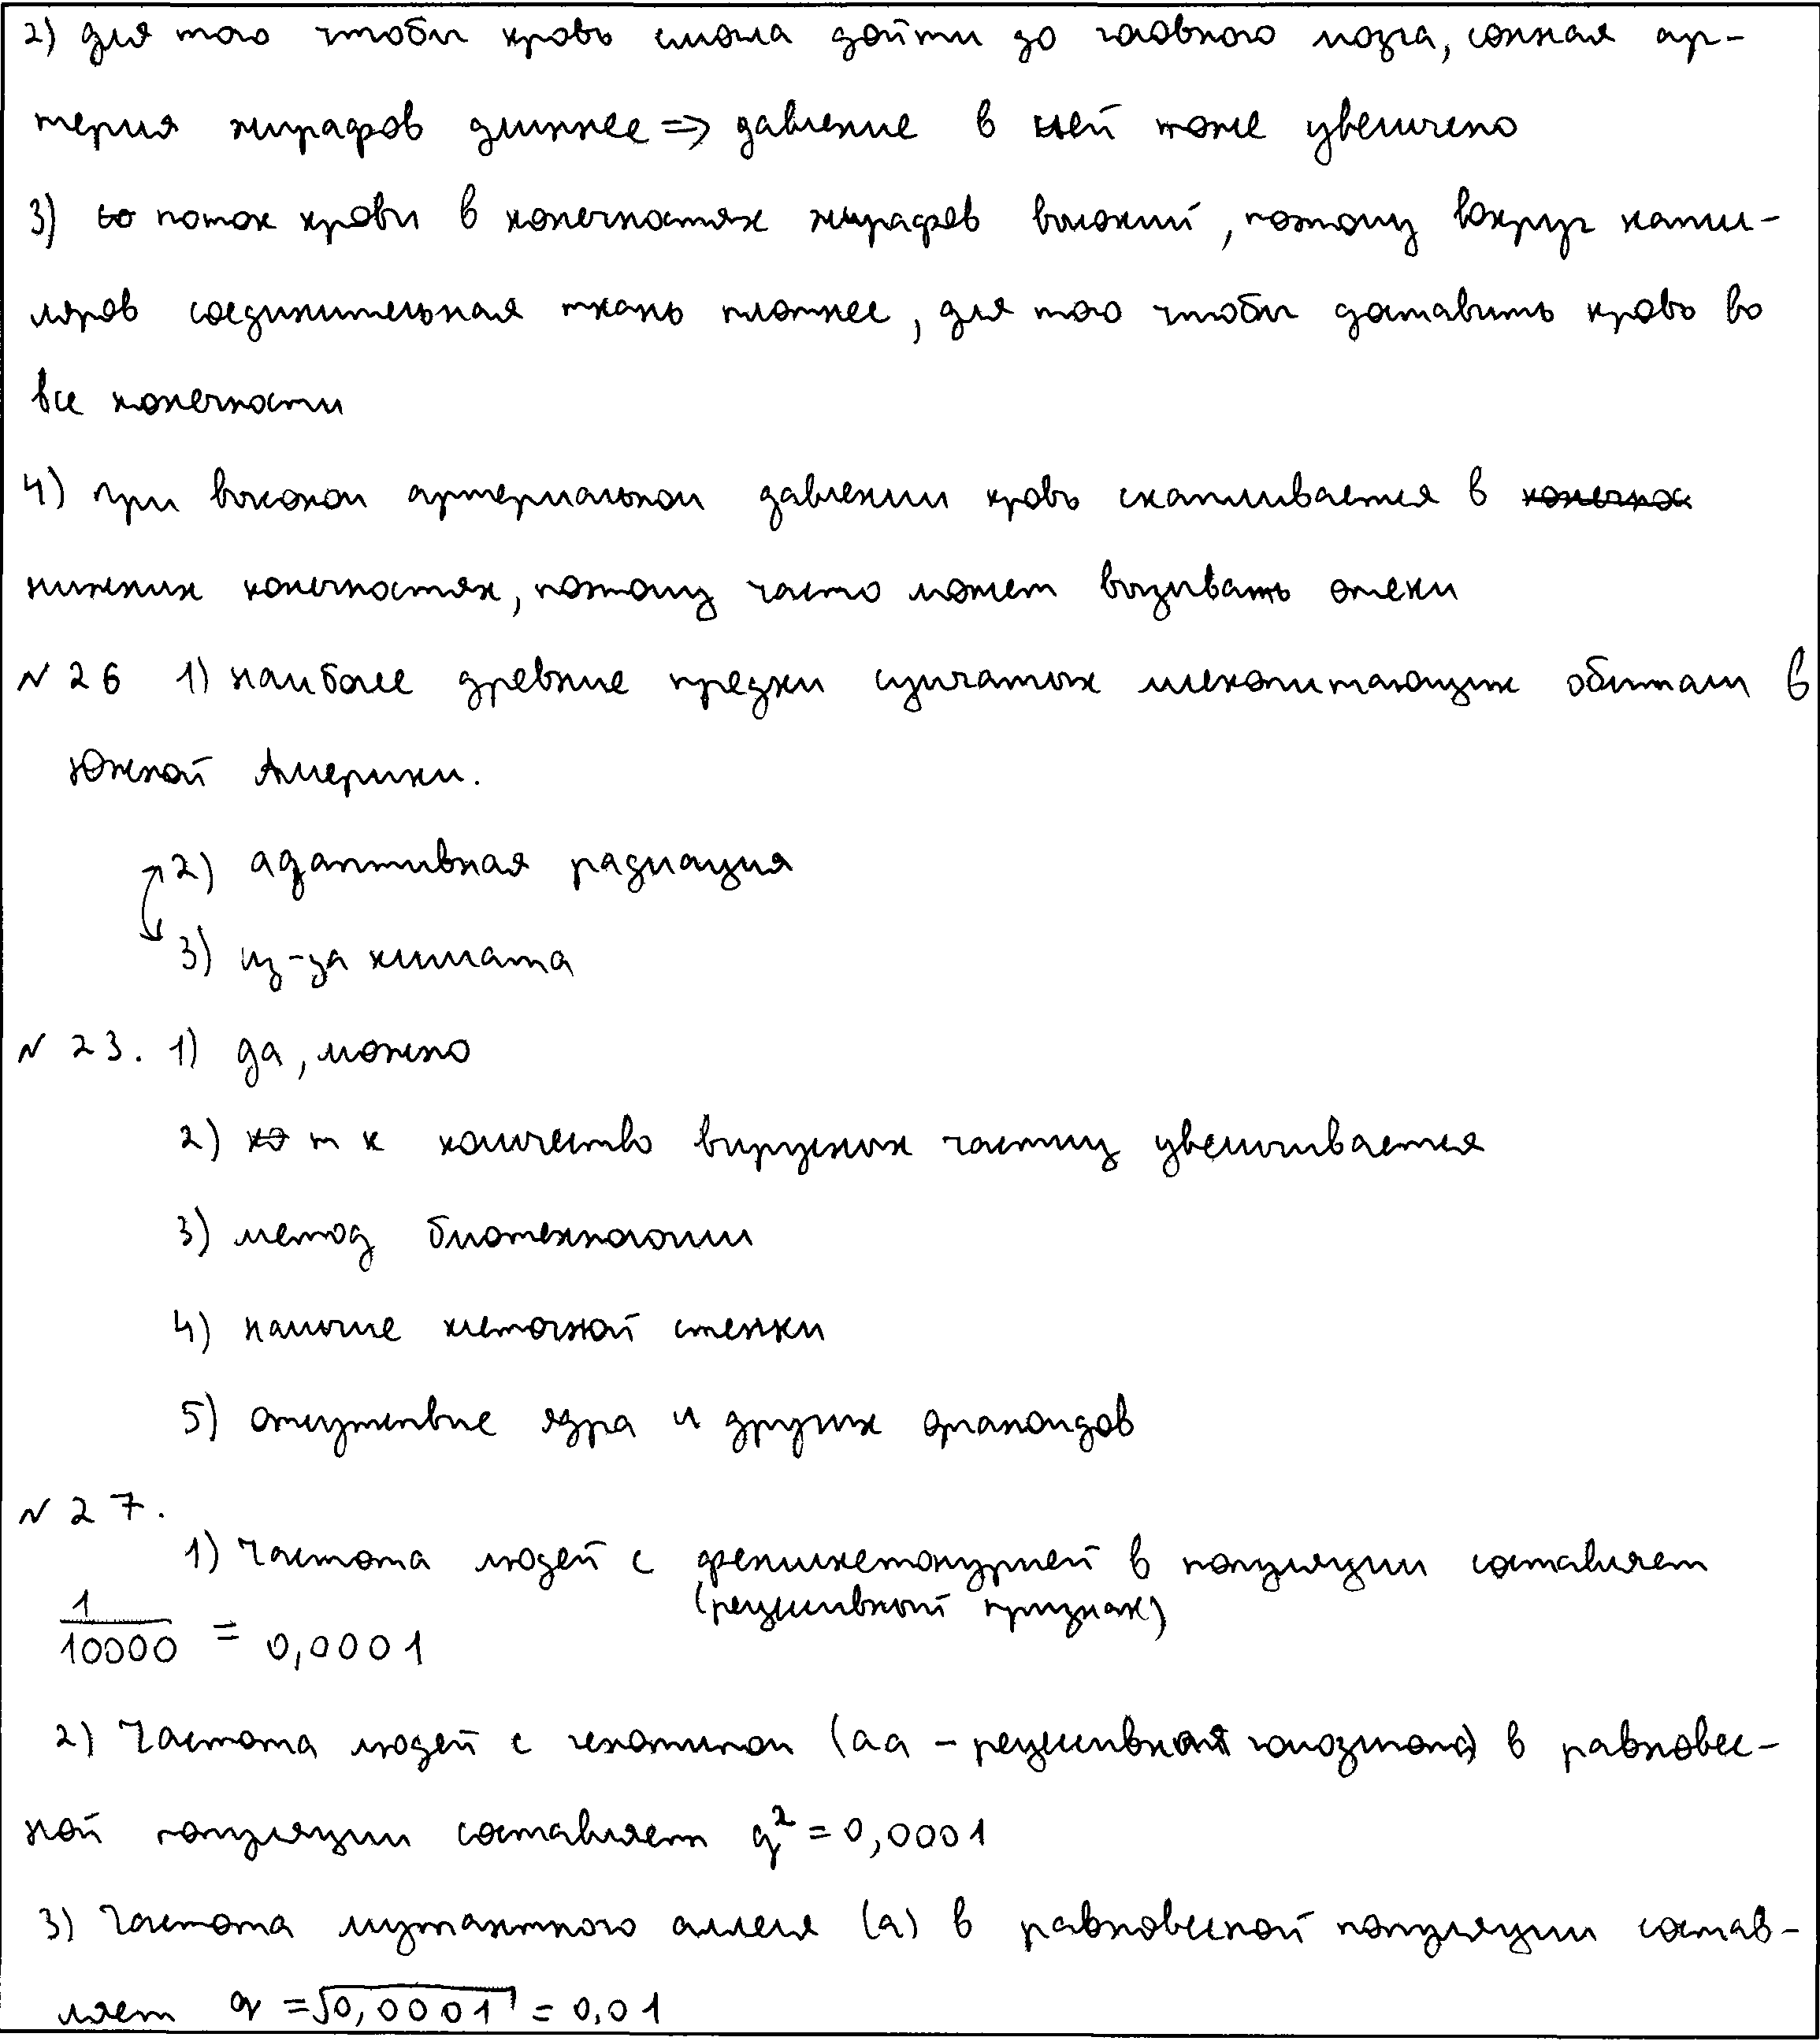 2) для того чтобы кровь смогла дойти до головного мозга, сонная ар-
терия жирафов длиннее => давление в ней тоже увеличено
3) поток крови в конечностях жирафов высокий, поэтому вокруг капи-
ляров соединительная ткань плотнее, для того чтобы доставить кровь во
все конечности
4) При высоком артериальном давлении кровь скапливается в конечнос
нижних конечностях, поэтому часто может вызывать отеки
№ 26 1) наиболее древние предки сумчатых млекопитающих обитали в
Южной Америки.
2) адаптивная радиация
3) из-за климата
№ 23. 1) да, можно
2) т к количество вирусных частиц увеличивается
3) метод биотехнологии
4) наличие клеточной стенки
5) отсутствие ядра и других органоидов
№ 27.
1) Частота людей с фенилкетонурией в популяции составляет
(рецессивный признак)
1/10000 = 0,0001
2) Частота людей с генотипом (aa - рецессивная гомозигота) в равновес-
ной популяции составляет q² = 0,0001
3) Частота мутантного аллеля (a) в равновесной популяции состав-
ляет q = √0,0001 = 0,01